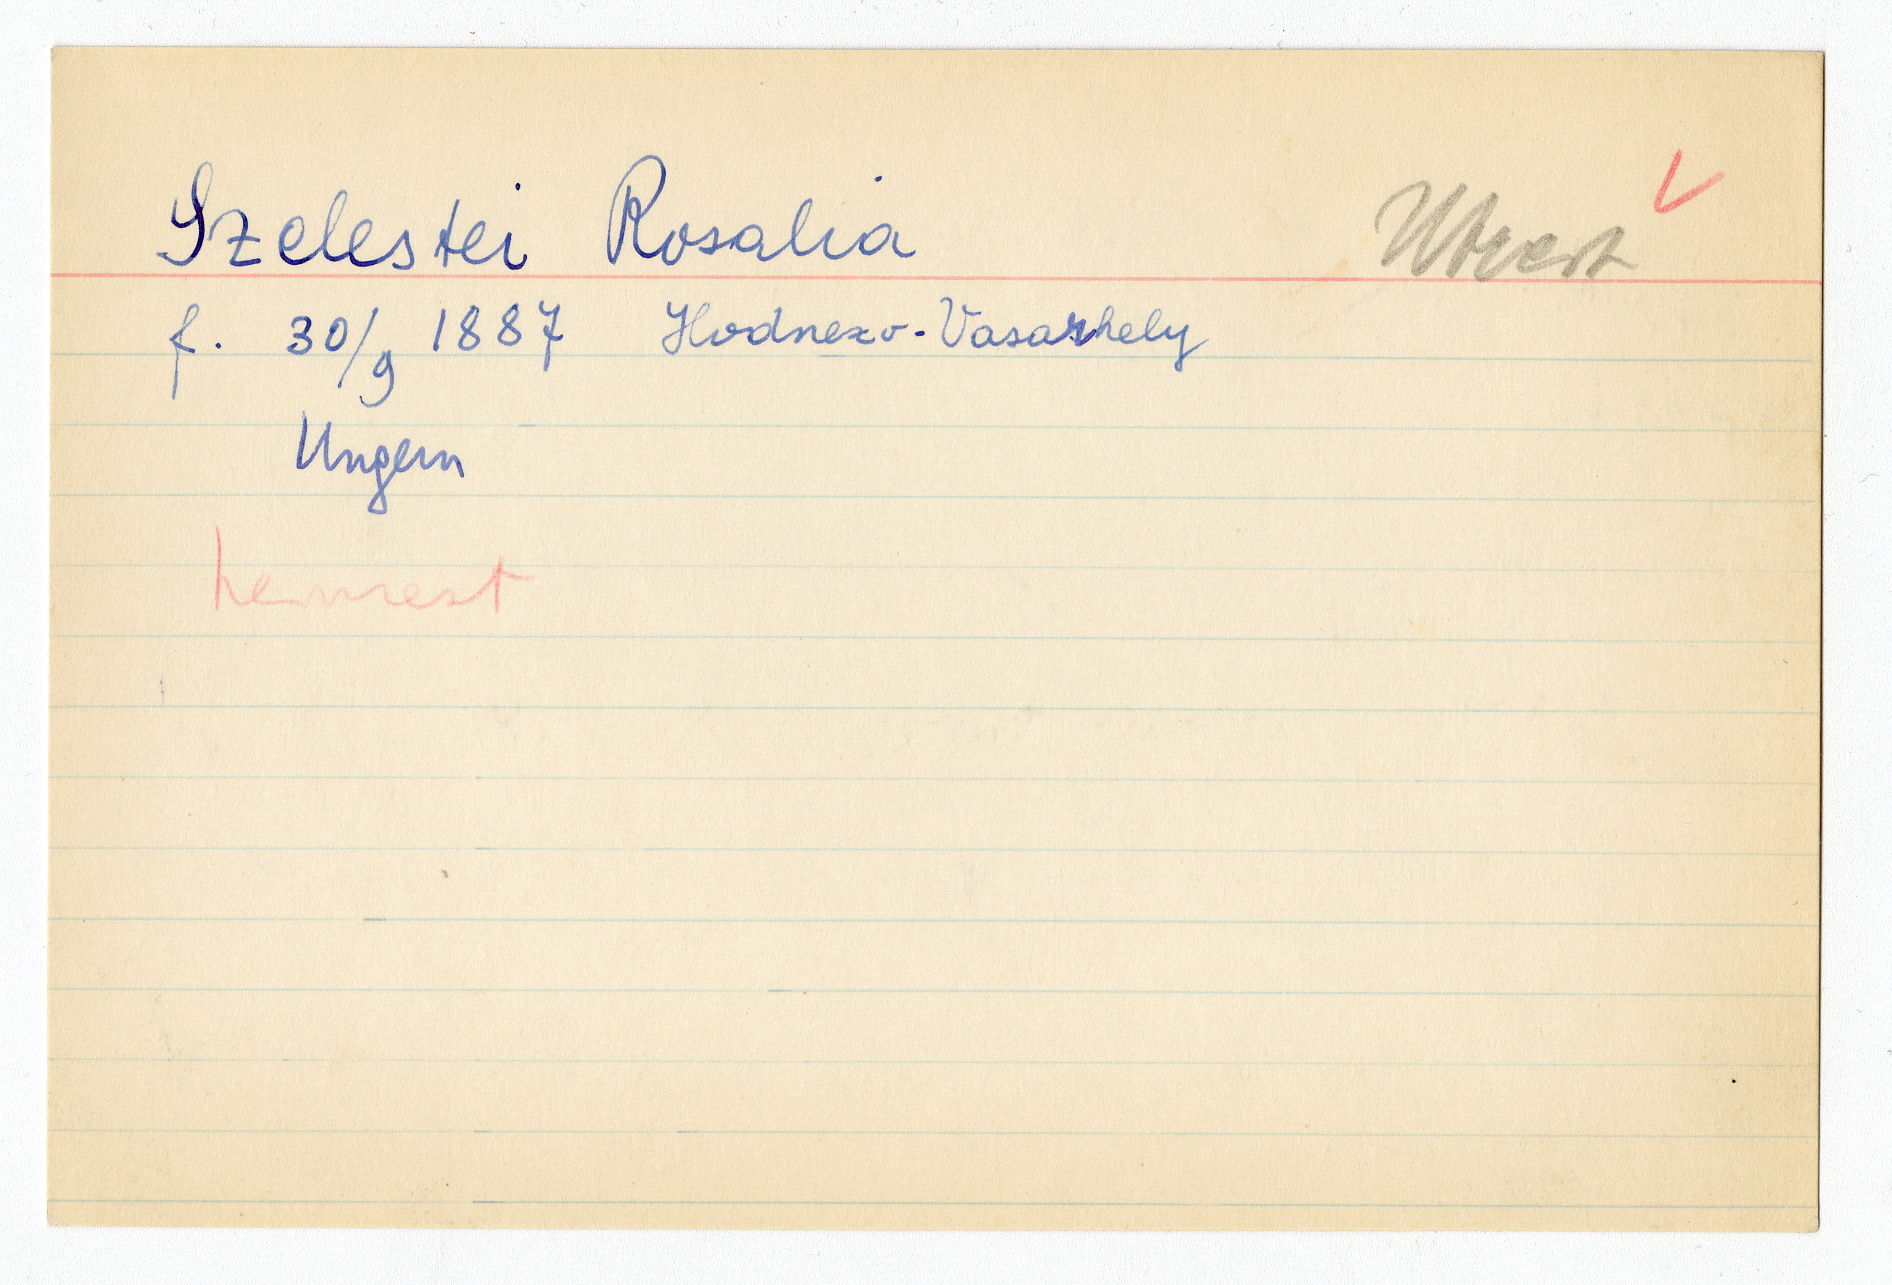 Szelestei Rosalia Utrest
f. 30/9 1887 Hodnezo-Vasarhely
Ungern
hemrest